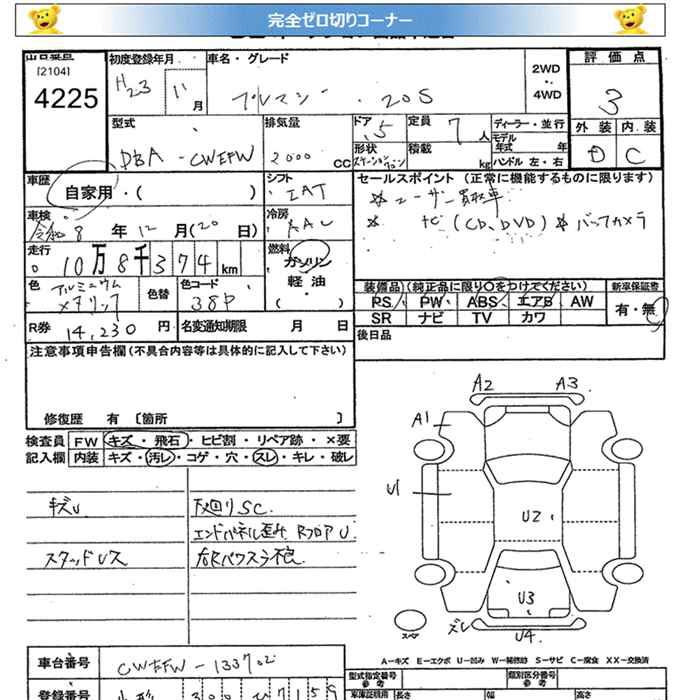 完全ゼロ切りコーナー
出品番号
[2104]
4225
初度登録年月
H23
11
月
車名・グレード
プレマシー ・20S
2WD
・
4WD
評価点
3
外装 内装
D C
型式
DBA - CWEFW
排気量
2000
cc
ドア
5
定員
7
人
形状
ステーションワゴン
積載
kg
ディーラー・並行
モデル
年式
年
ハンドル 左・右
車歴
自家用・( )
シフト
IAT
冷房
AAC
車検
令和 8 年 12 月 (20 日)
走行
10万8千374 km
燃料
ガソリン
軽油
( )
色
アルミニウム
メタリック
色替
色コード
38P
R券
14,230 円
名変通知期限
月 日
セールスポイント (正常に機能するものに限ります)
※ユーザー買取車
※ ナビ (CD、DVD) ※バックカメラ
装備品 (純正品に限り○をつけてください)
PS PW ABS エアB AW
SR ナビ TV カワ
新車保証書
有・無
後日品
注意事項申告欄 (不具合内容等は具体的に記入して下さい)
修復歴 有 〔箇所 〕
検査員
記入欄
FW
キズ・飛石・ヒビ割・リペア跡・×要
内装
キズ・汚レ・コゲ・穴・スレ・キレ・破レ
キズU
スタッドレス
下廻りSC
エンドパネル歪み RフロアU
右Rパワスラ不良
A2 A3
A1
U1
U2
U3
ズレ
U4
スペア
A…キズ E…エクボ U…凹み W…補修跡 S…サビ C…腐食 XX…交換済
車台番号
CWEFW-133702
登録番号
型式指定番号
参考
類別区分番号
参考
車庫証明用
参考
長さ
幅
高さ